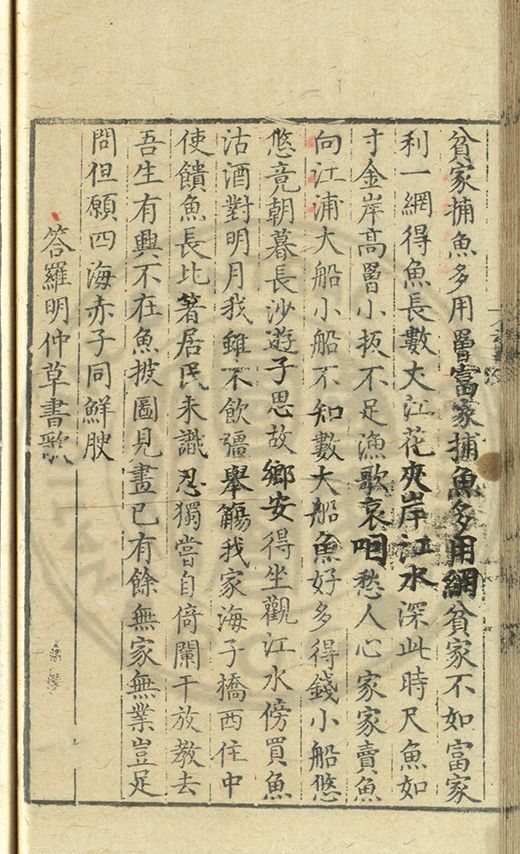 貧家捕魚多用罾富家捕魚多用網貧家不如富家
利一網得魚長數丈江花夾岸江水深此時尺魚如
寸金岸高罾小扳不足漁歌哀咽愁人心家家賣魚
向江浦大船小船不知數大船魚好多得錢小船悠
悠竟朝暮長沙遊子思故鄉安得坐觀江水傍買魚
沽酒對明月我雖不飲彊舉觴我家海子橋西住中
使饋魚長比箸居民未識忍獨嘗自倚闌干放教去
吾生有興不在魚披圖見畫已有餘無家無業豈足
問但願四海赤子同鮮腴
答羅明仲草書歌